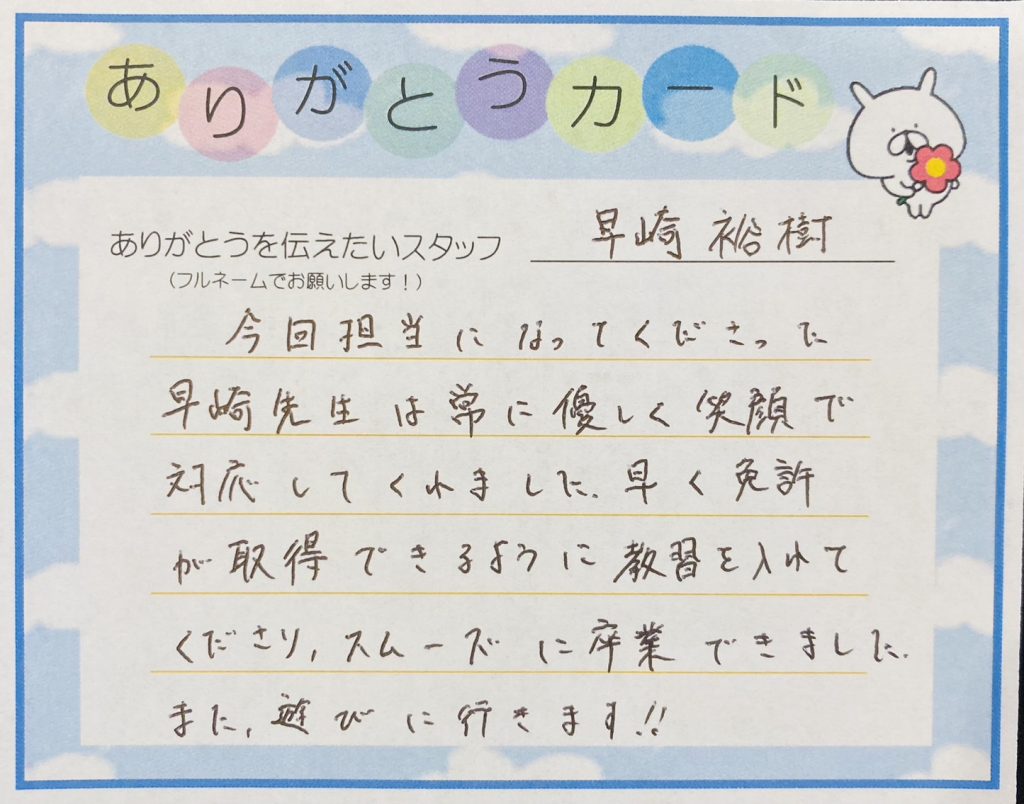 ありがとうカード
ありがとうを伝えたいスタッフ 早崎 裕樹
(フルネームでお願いします！)
今回担当になってくださった
早崎先生は常に優しく笑顔で
対応してくれました。早く免許
が取得できるように教習を入れて
くださり、スムーズに卒業できました。
また、遊びに行きます!!